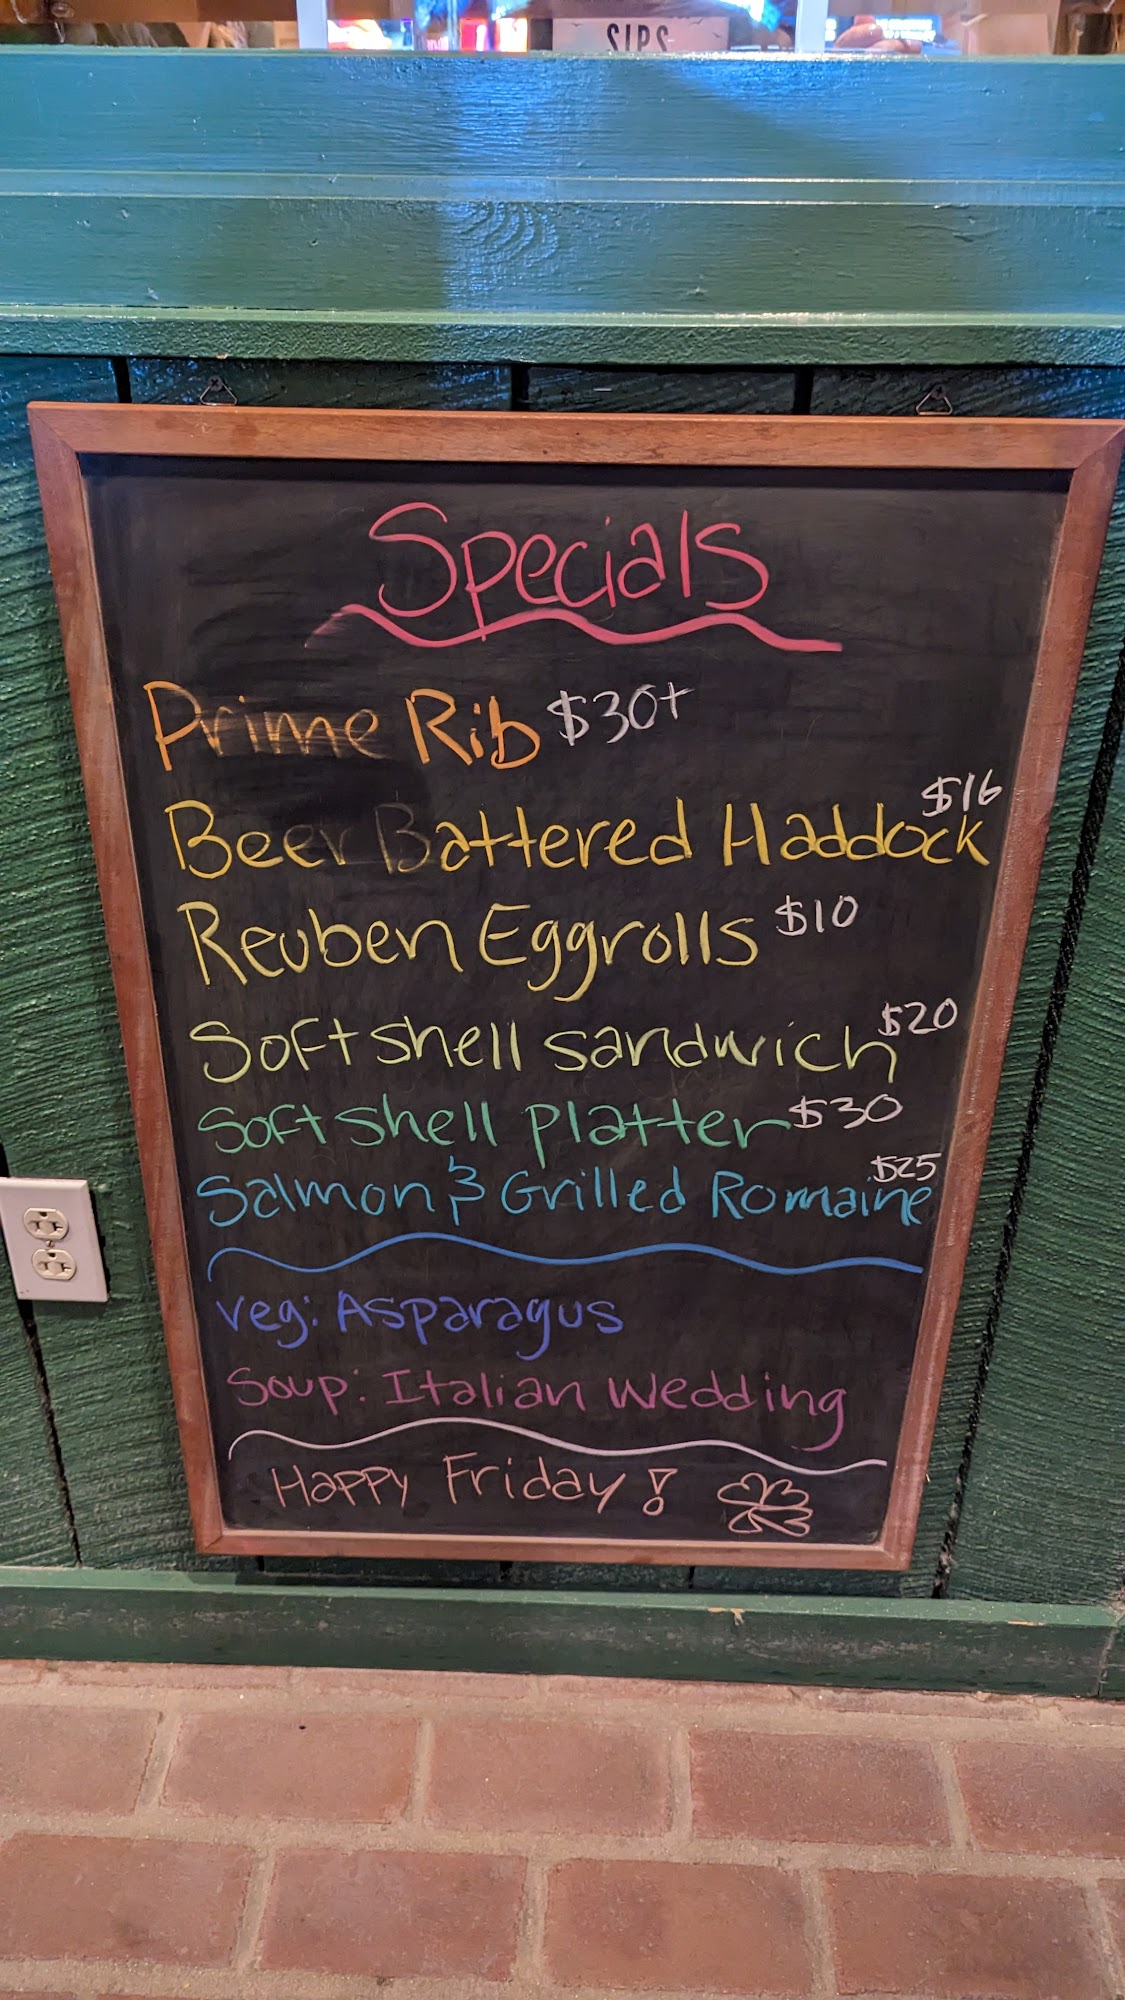 SIPS
Specials
Prime Rib $30+
Beer Battered Haddock $16
Reuben Eggrolls $10
Softshell sandwich $20
Softshell platter $30
Salmon & Grilled Romaine $25
veg: Asparagus
Soup: Italian Wedding
Happy Friday!